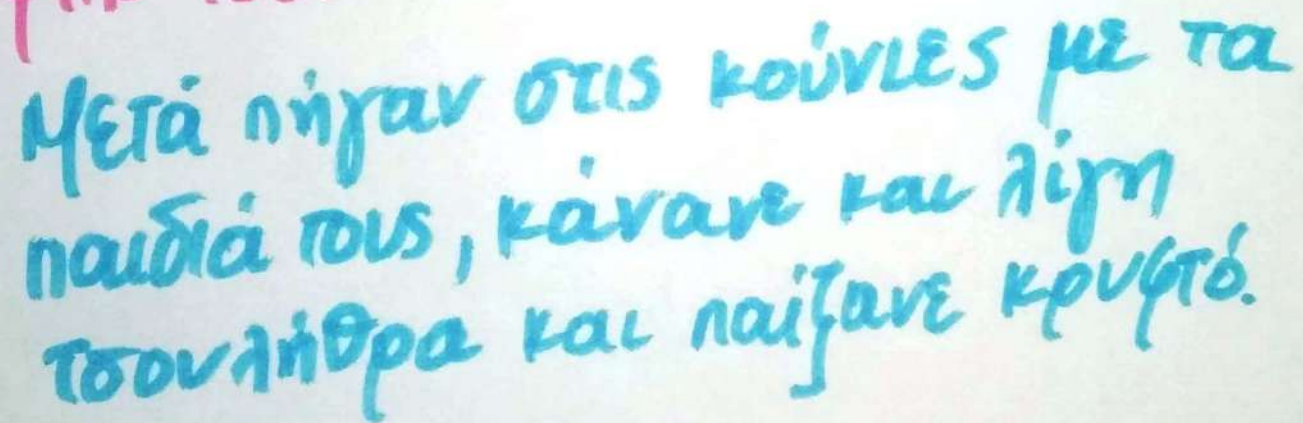 Μετά πήγαν στις κούνιες με τα
παιδιά τους, κάνανε και λίγη
τσουλήθρα και παίζανε κρυφτό.